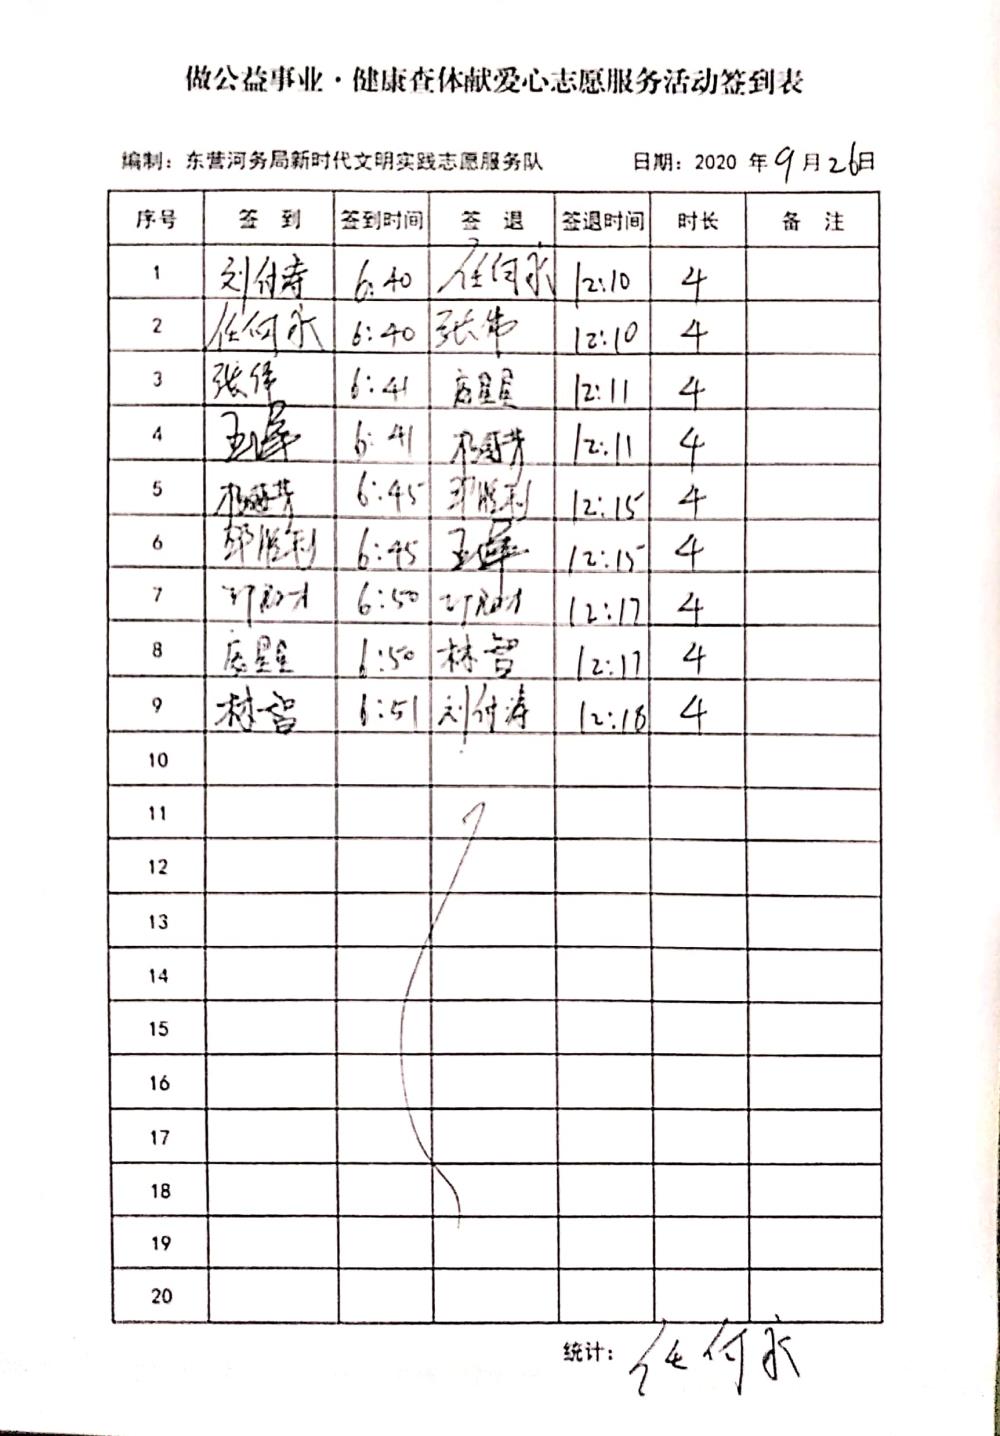 做公益事业·健康查体献爱心志愿服务活动签到表
编制：东营河务局新时代文明实践志愿服务队 日期：2020 年 9 月 26 日
序号 签 到 签到时间 签 退 签退时间 时长 备 注
1 刘付涛 6:40 任何永 12:10 4
2 任何永 6:40 张伟 12:10 4
3 张伟 6:41 星星 12:11 4
4 6:41 12:11 4
5 6:45 胜利 12:15 4
6 胜利 6:45 12:15 4
7 6:50 12:17 4
8 星星 6:50 林智 12:17 4
9 林智 6:51 刘付涛 12:18 4
10
11
12
13
14
15
16
17
18
19
20
统计： 任何永